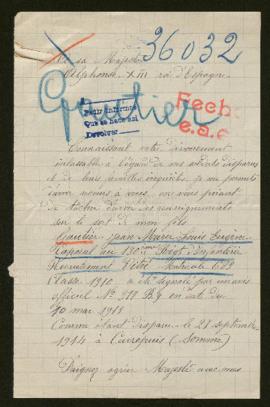 36032
A sa Majesté
Alphonse XIII roi d'Espagne
Gautier
Para informe
Que se hace así
Devolver
Fech
e.a.c
Connaissant votre dévouement
inlassable à l'égard de nos soldats disparus
et de leurs familles inquiètes, je me permets
d'avoir recours à vous, en vous priant
de tâcher d'avoir des renseignements
sur le sort de mon fils
Gautier Jean Marie Louis Eugène
Caporal au 130ème Régt d'infanterie
Recrutement Vitré Matricule 603
Classe 1910 a été signalé par un avis
officiel No 318 B.9 en date du
10 mai 1915
Comme étant disparu le 27 septembre
1914 à Carrépuis (Somme)
Daignez agréer Majesté avec mes